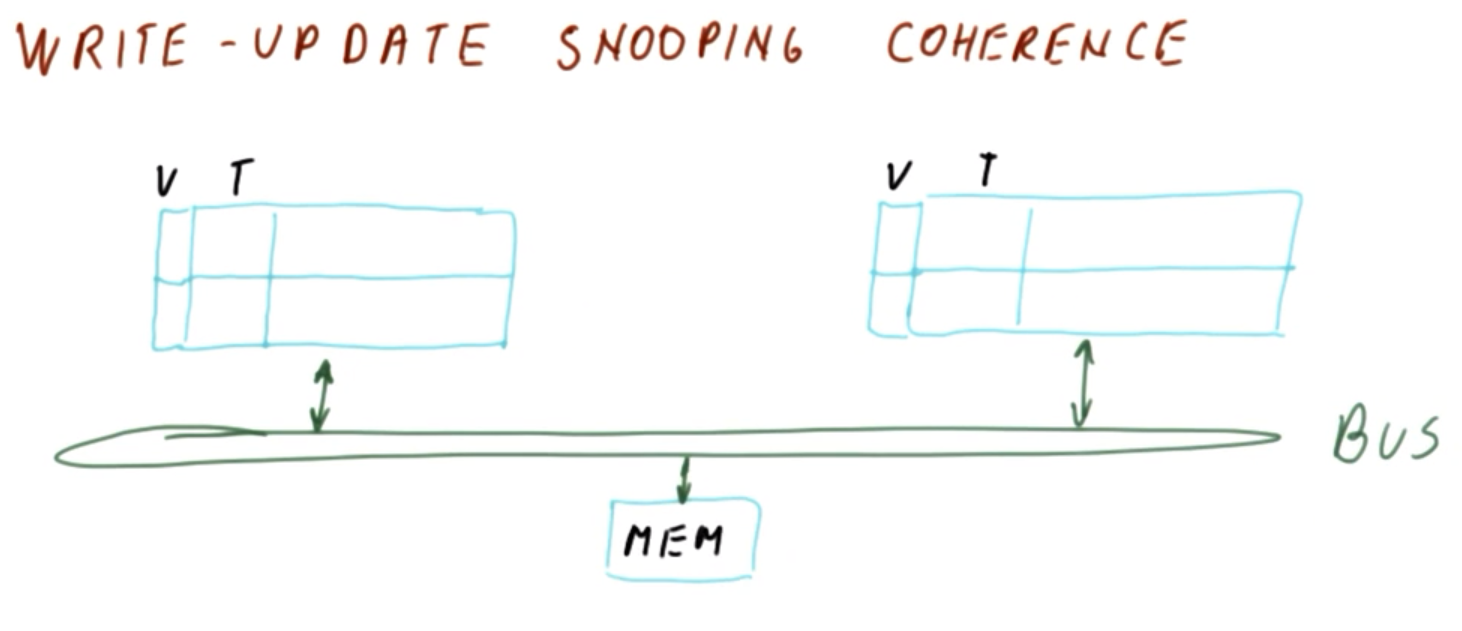 WRITE-UPDATE SNOOPING COHERENCE
V T
V T
BUS
MEM